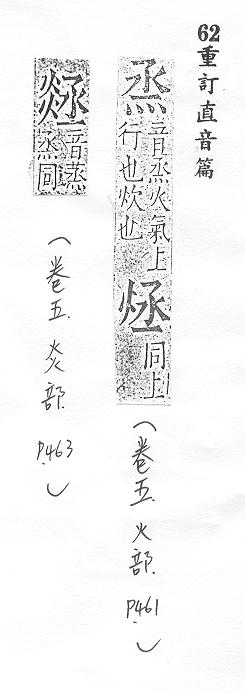 62重訂直音篇
烝
音烝火氣上
行也炊也
同上
(卷五 火部 P461)
音烝
烝同
(卷五 炎部 P463)